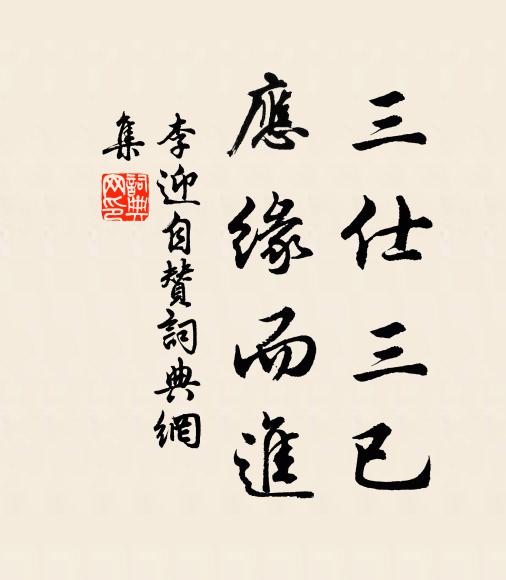 三仕三已
應緣而進
李迎自贊詞典網
集
詞典
网印